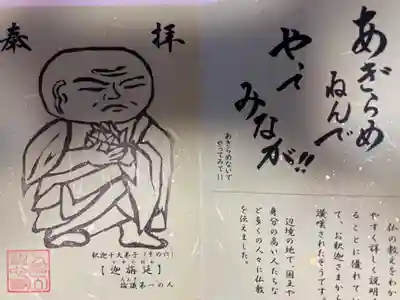 奉拝
あぎらめ
ねんで
やって
みなが!!
あきらめないで
やってみて!!
釈迦十大弟子(その六)
【迦旃延】
論議第一の人
仏の教えをわか
やすく詳しく説明
ることに優れてい
て、お釈迦さまか
讃嘆されたそうです
辺境の地で、国王や
身分の高い人たちな
ど多くの人々に仏教
を伝えました。